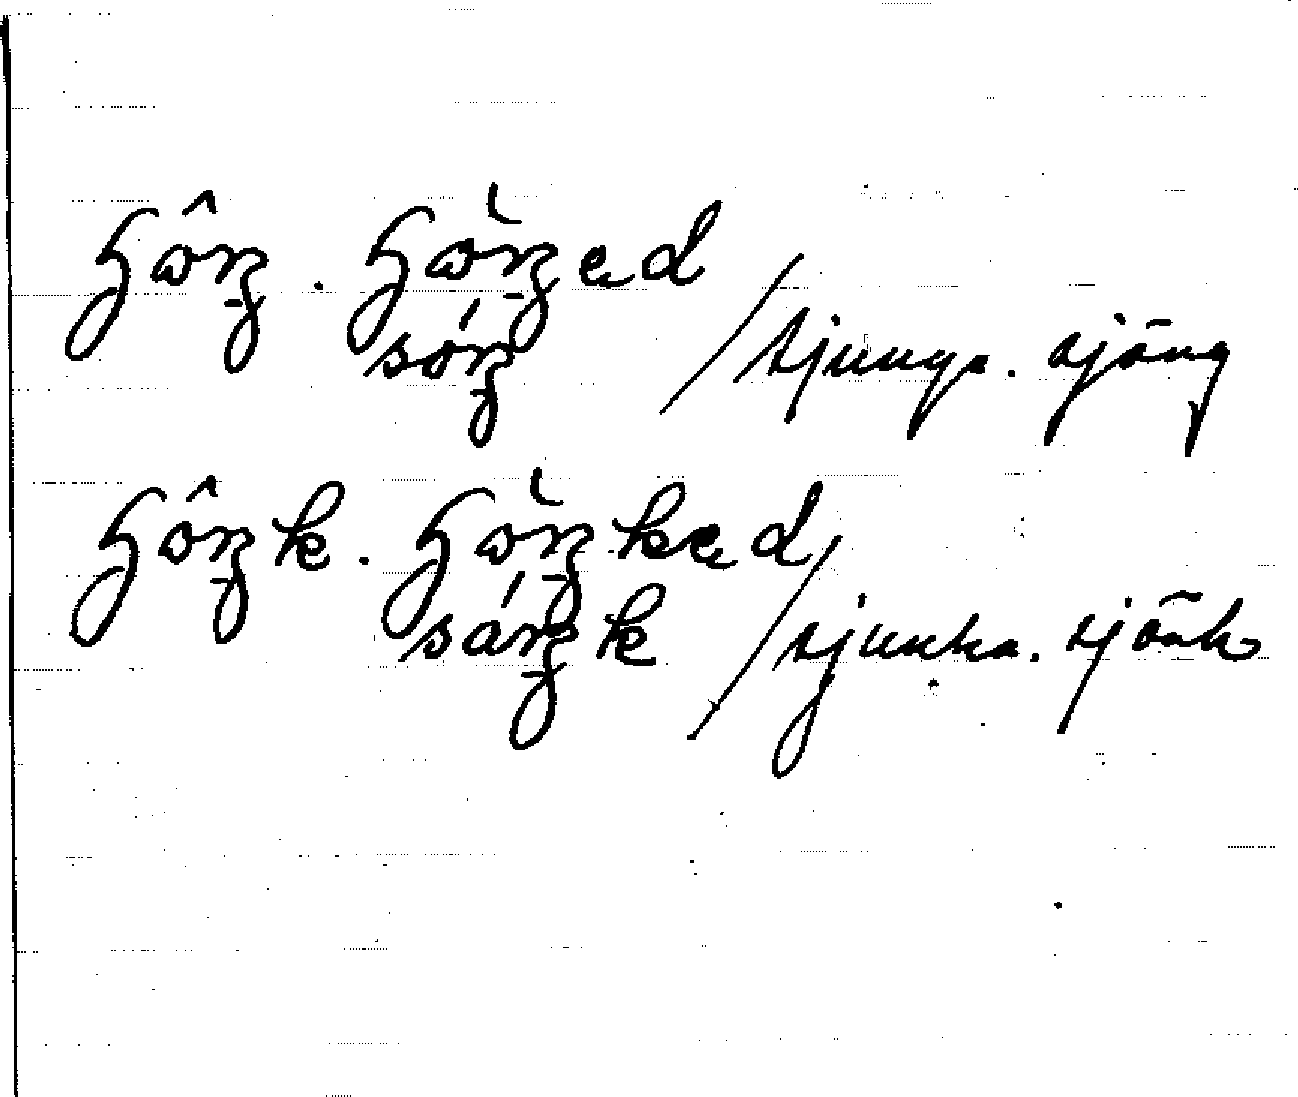 ʃôŋ . ʃòŋed
sóŋ / sjunga. sjöng
ʃôŋk . ʃòŋked
sáŋk / sjunka. sjönk